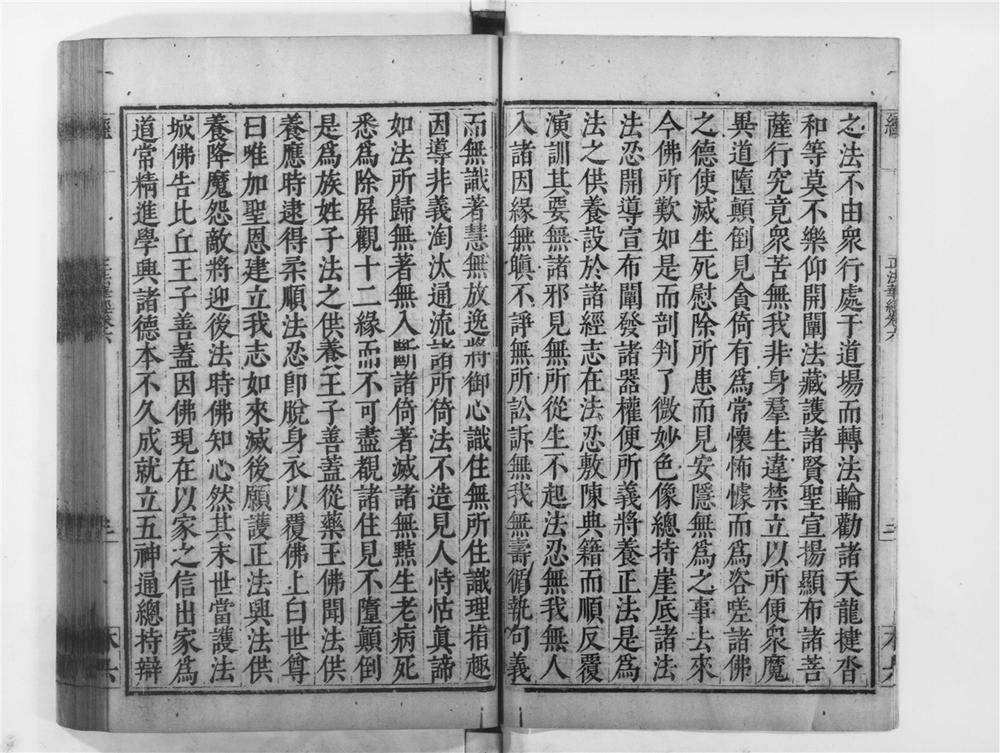 經　正法華經卷六
之法不由衆行處于道場而轉法輪勸諸天龍揵沓
和等莫不樂仰開闡法藏護諸賢聖宣揚顯布諸菩
薩行究竟衆苦無我非身羣生違禁立以所便衆魔
異道墮顛倒見貪倚有爲常懷怖懅而爲咨嗟諸佛
之德使滅生死慰除所患而見安隱無爲之事去來
今佛所歎如是而剖判了微妙色像總持崖底諸法
法忍開導宣布闡發諸器權便所義將養正法是爲
法之供養設於諸經志在法忍敷陳典籍而順反覆
演訓其要無諸邪見無所從生不起法忍無我無人
入諸因緣無瞋不諍無所訟訴無我無壽循執句義
而無識著慧無放逸將御心識住無所住識理指趣
因導非義淘汰通流諸所倚法不造見人恃怙眞諦
如法所歸無著無入斷諸倚著滅諸無黠生老病死
悉爲除屏觀十二緣而不可盡覩諸住見不墮顛倒
是爲族姓子法之供養王子善蓋從藥王佛聞法供
養應時逮得柔順法忍卽脫身衣以覆佛上白世尊
曰唯加聖恩建立我志如來滅後願護正法興法供
養降魔怨敵將迎後法時佛知心然其末世當護法
城佛告比丘王子善蓋因佛現在以家之信出家爲
道常精進學興諸德本不久成就立五神通總持辯
經　正法華經卷六